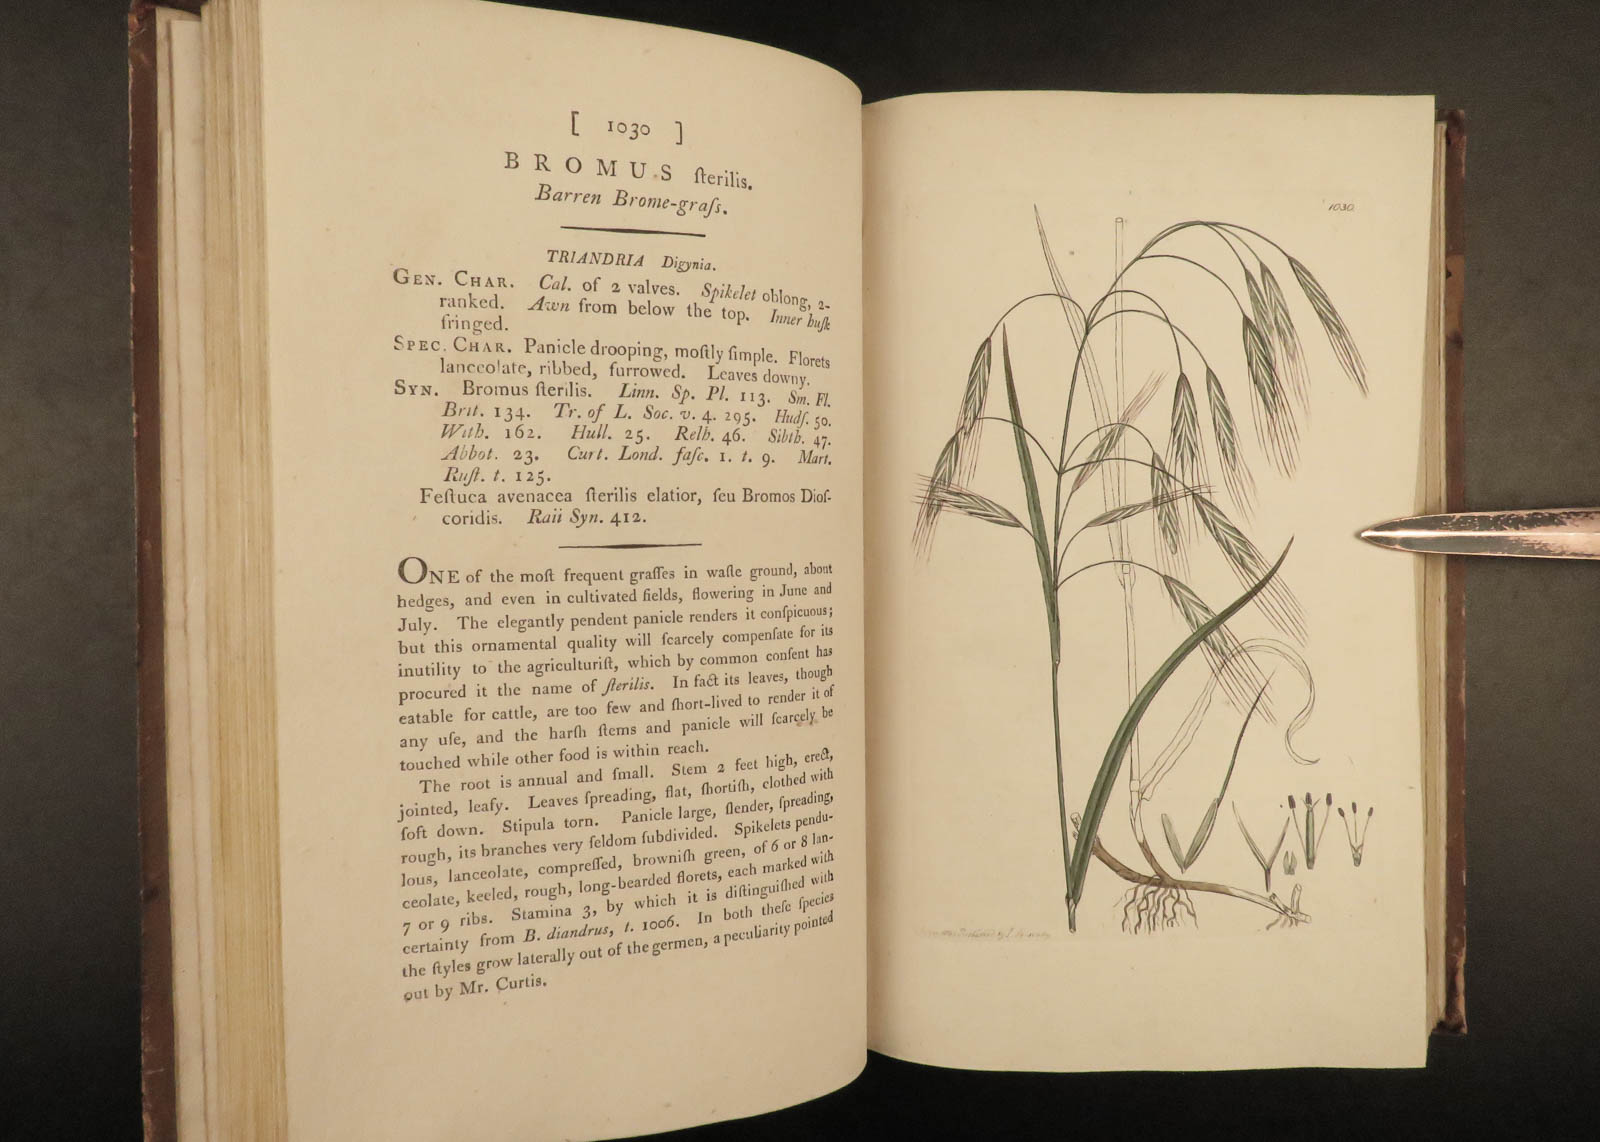 [ 1030 ]
BROMUS ſterilis.
Barren Brome-graſs.
TRIANDRIA Digynia.
GEN. CHAR. Cal. of 2 valves. Spikelet oblong, 2-
ranked. Awn from below the top. Inner huſk
fringed.
SPEC. CHAR. Panicle drooping, moſtly ſimple. Florets
lanceolate, ribbed, furrowed. Leaves downy.
SYN. Bromus ſterilis. Linn. Sp. Pl. 113. Sm. Fl.
Brit. 134. Tr. of L. Soc. v. 4. 295. Hudſ. 50.
With. 162. Hull. 25. Relh. 46. Sibth. 47.
Abbot. 23. Curt. Lond. faſc. 1. t. 9. Mart.
Ruſt. t. 125.
Feſtuca avenacea ſterilis elatior, ſeu Bromos Dioſ-
coridis. Raii Syn. 412.
ONE of the moſt frequent graſſes in waſte ground, about
hedges, and even in cultivated fields, flowering in June and
July. The elegantly pendent panicle renders it conſpicuous;
but this ornamental quality will ſcarcely compenſate for its
inutility to the agriculturiſt, which by common conſent has
procured it the name of ſterilis. In fact its leaves, though
eatable for cattle, are too few and ſhort-lived to render it of
any uſe, and the harſh ſtems and panicle will ſcarcely be
touched while other food is within reach.
The root is annual and ſmall. Stem 2 feet high, erect,
jointed, leafy. Leaves ſpreading, flat, ſhortiſh, clothed with
ſoft down. Stipula torn. Panicle large, ſlender, ſpreading,
rough, its branches very ſeldom ſubdivided. Spikelets pendu-
lous, lanceolate, compreſſed, browniſh green, of 6 or 8 lan-
ceolate, keeled, rough, long-bearded florets, each marked with
7 or 9 ribs. Stamina 3, by which it is diſtinguiſhed with
certainty from B. diandrus, t. 1006. In both theſe ſpecies
the ſtyles grow laterally out of the germen, a peculiarity pointed
out by Mr. Curtis.
1030.
Published by J.